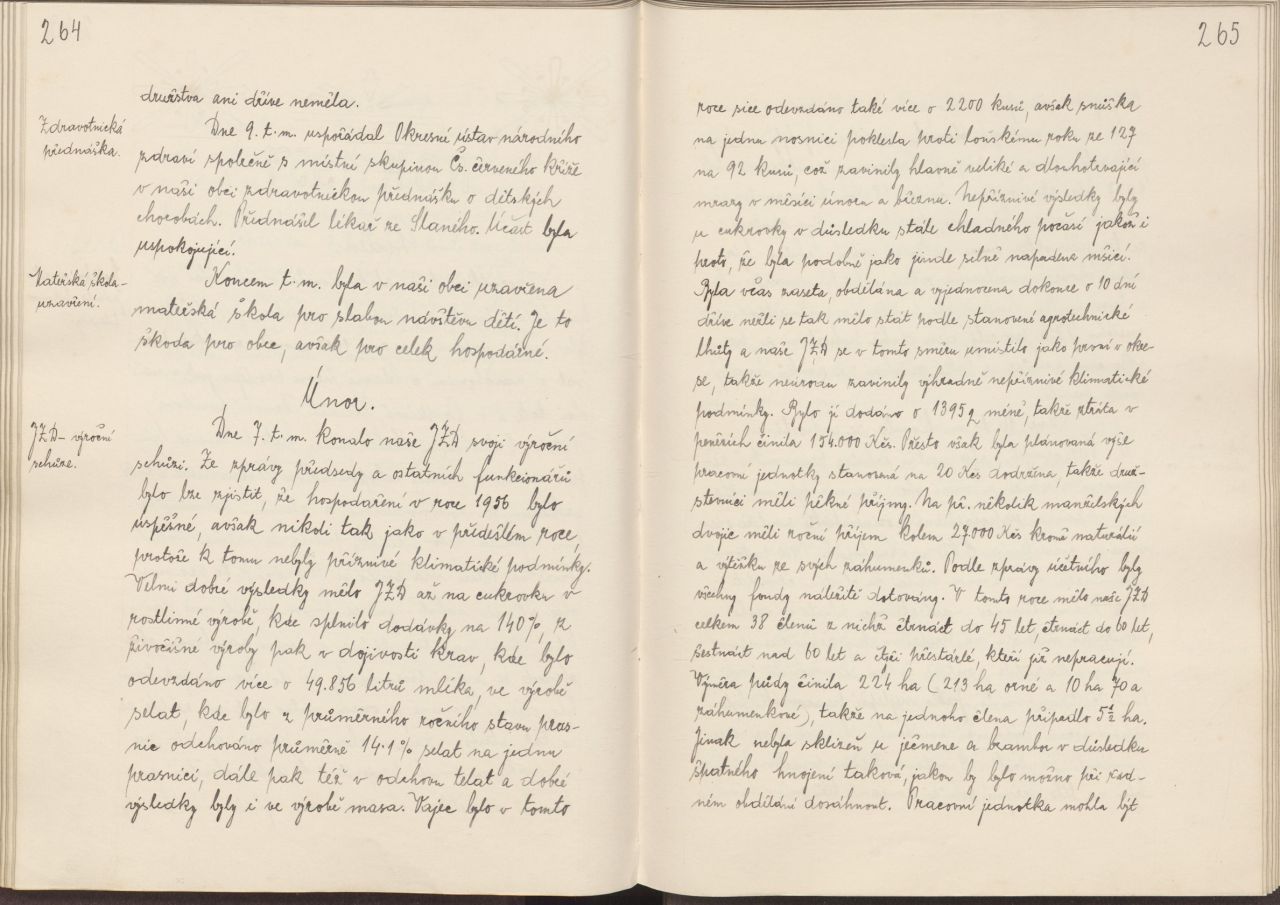 264
družstva ani dříve neměla.
Zdravotnická
přednáška.
Dne 9. t.m. uspořádal Okresní ústav národního
zdraví společně s místní skupinou Čs. červeného kříže
v naší obci zdravotnickou přednášku o dětských
chorobách. Přednášel lékař ze Slaného. Účast byla
uspokojující.
Mateřská škola -
uzavření.
Koncem t.m. byla v naší obci uzavřena
mateřská škola pro slabou návštěvu dětí. Je to
škoda pro obec, avšak pro celek hospodárné.
Únor.
JZD - výroční
schůze.
Dne 7. t.m. konalo naše JZD svoji výroční
schůzi. Ze zprávy předsedy a ostatních funkcionářů
bylo lze zjistit, že hospodaření v roce 1956 bylo
úspěšné, avšak nikoli tak jako v předešlém roce,
protože k tomu nebyly příznivé klimatické podmínky.
Velmi dobré výsledky mělo JZD až na cukrovku v
rostlinné výrobě, kde splnilo dodávky na 140%, z
živočišné výroby pak v dojivosti krav, kde bylo
odevzdáno více o 49.856 litrů mléka, ve výrobě
selat, kde bylo z průměrného ročního stavu pras-
nic odchováno průměrně 14.1% selat na jednu
prasnici, dále pak též v odchovu telat a dobré
výsledky byly i ve výrobě masa. Vajec bylo v tomto
265
roce sice odevzdáno také více o 2200 kusů, avšak snůška
na jednu nosnici poklesla proti loňskému roku ze 127
na 92 kusů, což zavinily hlavně veliké a dlouhotrvající
mrazy v měsíci únoru a březnu. Nepříznivé výsledky byly
u cukrovky v důsledku stále chladného počasí jakož i
proto, že byla podobně jako jinde silně napadena mšicí.
Byla včas zaseta, obdělána a vyjednocena dokonce o 10 dní
dříve nežli se tak mělo stát podle stanovené agrotechnické
lhůty a naše JZD se v tomto směru umístilo jako první v okre-
se, takže neúrodu zavinily výhradně nepříznivé klimatické
podmínky. Bylo jí dodáno o 1395 q méně, takže ztráta v
penězích činila 154.000 Kčs. Přesto však byla plánovaná výše
pracovní jednotky stanovená na 20 Kčs dodržena, takže druž-
stevníci měli pěkné příjmy. Na př. několik manželských
dvojic měli roční příjem kolem 27.000 Kčs kromě naturálií
a výtěžku ze svých záhumenků. Podle zprávy účetního byly
všechny fondy náležitě dotovány. V tomto roce mělo naše JZD
celkem 38 členů z nichž čtrnáct do 45 let, čtrnáct do 60 let,
šestnáct nad 60 let a čtyři přestárlé, kteří již nepracují.
Výměra půdy činila 224 ha (213 ha orné a 10 ha 70 a
záhumenkové), takže na jednoho člena připadlo 5½ ha.
Jinak nebyla sklizeň u ječmene a brambor v důsledku
špatného hnojení taková, jakou by bylo možno při řád-
ném obdělání dosáhnout. Pracovní jednotka mohla být